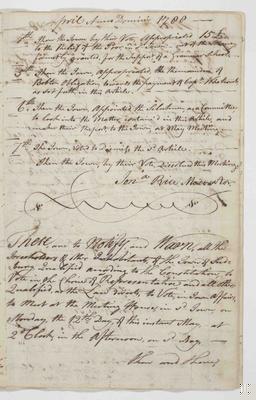 April Anno Domini 1788
4th Then the Town by their Vote Appropriated 15
to the Relief of the Poor in sd Town, out of the Money
formerly granted, for the Support of a Grammar School.
5th Then the Town, appropriated the remainder of
Obligation, towards the payment of Capt
as set forth in this Article.
6th Then the Town, Appointed the Selectmen as a Committee
to look into the Matter contain'd in this Article, and
make their Report to the Town, at May Meeting
7th The Town, voted to dismiss the 7th Article.
Then the Town, by their Vote, Dissolved this Meeting
Jona Rice Moderator
These are to Notify and Warn, all the
Freeholders & other Inhabitants, of the Town of Sud-
bury Qualified according to the Constitution, to
Vote in the Choice of Representatives and all others
Qualified as the Law directs, to Vote in Town Affairs,
to Meet at the Meeting House, in sd Town, on
Monday, the 12th Day, of this instant May, at
2 oClock, in the Afternoon, on sd Day
Then and There